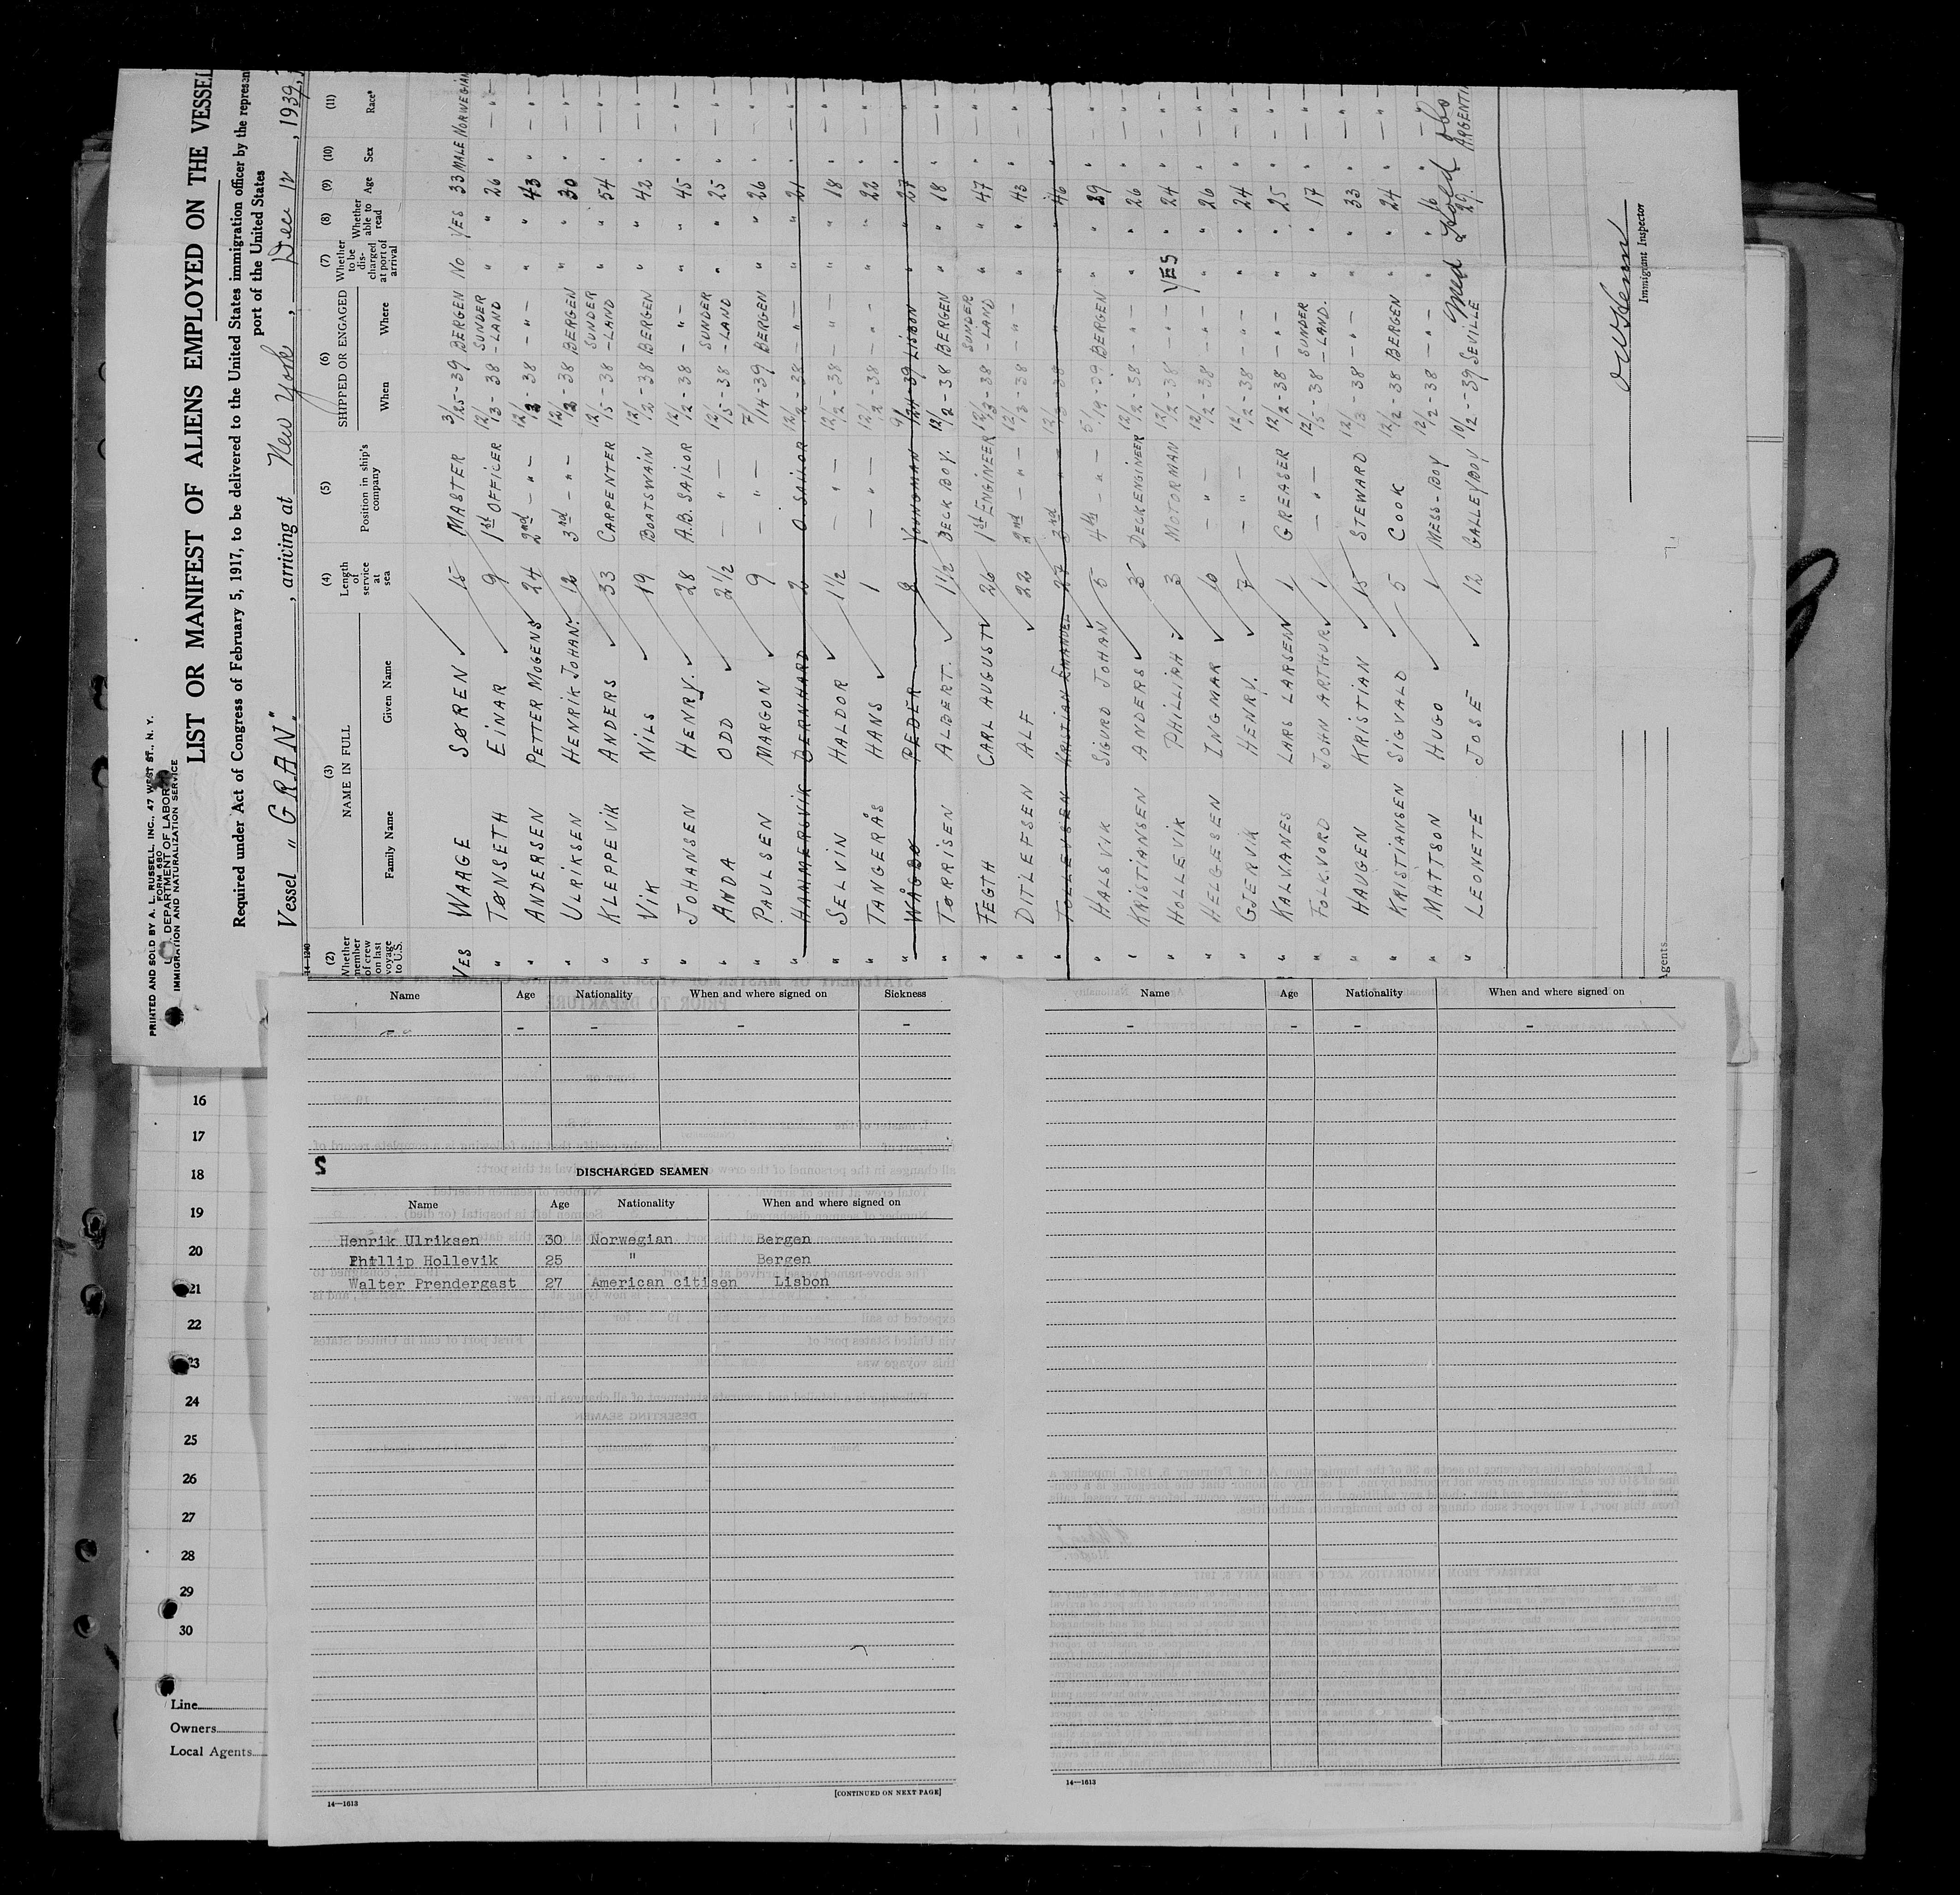 PRINTED AND SOLD BY A. L. RUSSELL, INC., 47 WEST ST., N. Y.
FORM 680
DEPARTMENT OF LABOR
IMMIGRATION AND NATURALIZATION SERVICE
LIST OR MANIFEST OF ALIENS EMPLOYED ON THE VESSEL
Required under Act of Congress of February 5, 1917, to be delivered to the United States immigration officer by the represen
port of the United States
Vessel "GRAN" , arriving at New York , Dec 12 , 1939,
14-1240
(2) (3) (4) (5) (6) (7) (8) (9) (10) (11)
Whether member of crew on last voyage to U.S. NAME IN FULL Length of service at sea Position in ship's company SHIPPED OR ENGAGED Whether to be discharged at port of arrival Whether able to read Age Sex Race*
Family Name Given Name When Where
YES WAAGE SØREN 15 MASTER 3/25-39 BERGEN No YES 33 MALE NORWEGIAN
" TØNSETH EINAR 9 1st OFFICER 12/13-38 SUNDER-LAND " " 26 " — " —
" ANDERSEN PETTER MOGENS 24 2nd — " — 12/2-38 — " — " " 43 " — " —
" ULRIKSEN HENRIK JOHAN. 12 3rd — " — 12/2-38 BERGEN " " 30 " — " —
" KLEPPEVIK ANDERS 33 CARPENTER 12/15-38 SUNDER-LAND " " 54 " — " —
" VIK NILS 19 BOATSWAIN 12/2-38 BERGEN " " 42 " — " —
" JOHANSEN HENRY. 28 A.B. SAILOR 12/2-38 — " — " " 45 " — " —
" ANDA ODD 2 1/2 — " — 12/15-38 SUNDER-LAND " " 25 " — " —
" PAULSEN MARGON 9 — " — 7/14-39 BERGEN " " 26 " — " —
" HAMMERSVIK BERNHARD 2 O SAILOR 12/2-38 — " — " " 21 " — " —
" SELVIN HALDOR 1 1/2 — " — 12/2-38 — " — " " 18 " — " —
" TANGERÅS HANS 1 — " — 12/2-38 — " — " " 22 " — " —
" WÅGBØ PEDER 8 YOUNGMAN 9/24-39 LISBON " " 27 "
" TORRISEN ALBERT. 1 1/2 DECK BOY. 12/2-38 BERGEN " " 18 " — " —
" FEGTH CARL AUGUST 26 1st ENGINEER 12/13-38 SUNDER-LAND " " 47 " — " —
" DITLEFSEN ALF 22 2nd — " — 12/13-38 — " — " " 43 " — " —
" TOLLEVSEN KRISTIAN EMANUEL 27 3rd " 12/13-38 " " 46 "
" HALSVIK SIGURD JOHAN 5 4th — " — 5/19-39 BERGEN " " 29 " — " —
" KRISTIANSEN ANDERS 3 DECKENGINEER 12/2-38 — " — " " 26 " — " —
" HOLLEVIK PHILLIAH 3 MOTORMAN 12/2-38 — " — YES " 24 " — " —
" HELGESEN INGMAR 10 — " — 12/2-38 — " — " " 26 " — " —
" GJERVIK HENRY. 7 — " — 12/2-38 — " — " " 24 " — " —
" KALVANES LARS LARSEN 1 GREASER 12/2-38 — " — " " 25 " — " —
" FOLKVORD JOHN ARTHUR 1 — " — 12/15-38 SUNDER-LAND. " " 17 " — " —
" HAUGEN KRISTIAN 15 STEWARD 12/13-38 — " — " " 33 " — " —
" KRISTIANSEN SIGVALD 5 COOK 12/2-38 BERGEN " " 24 " — " —
" MATSON HUGO 1 MESS-BOY 12/2-38 — " — " " 16 " — " —
" LEONETE JOSÉ 12 GALLEYBOY 10/12-39 SEVILLE 29 ARGENTIN
Immigrant Inspector
Agents
Name Age Nationality When and where signed on Sickness
- - - - -
DISCHARGED SEAMEN
Name Age Nationality When and where signed on
Henrik Ulriksen 30 Norwegian Bergen
Phillip Hollevik 25 " Bergen
Walter Prendergast 27 American citisen Lisbon
[CONTINUED ON NEXT PAGE]
14—1613
Name Age Nationality When and where signed on
- - - -
14—1613
16
17
18
19
20
21
22
23
24
25
26
27
28
29
30
Line
Owners
Local Agents